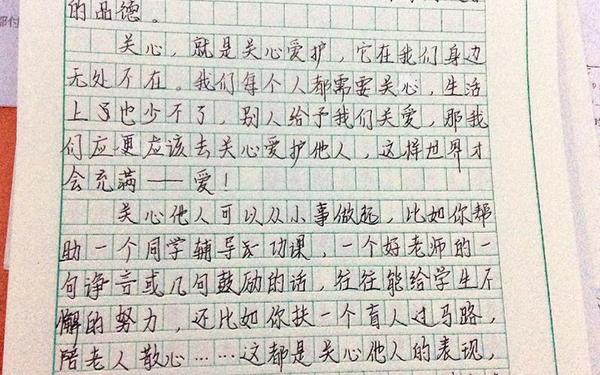 的品德。
关心，就是关心爱护，它在我们身边
无处不在。我们每个人都需要关心，生活
上了也少不了，别人给予我们关爱，那我
们应更应该去关心爱护他人，这样世界才
会充满——爱！
关心他人可以从小事做起，比如你帮
助一个同学辅导功课，一个好老师的一
句诤言或几句鼓励的话，往往能给学生不
懈的努力，还比如你扶一个盲人过马路，
陪老人散心……这都是关心他人的表现，